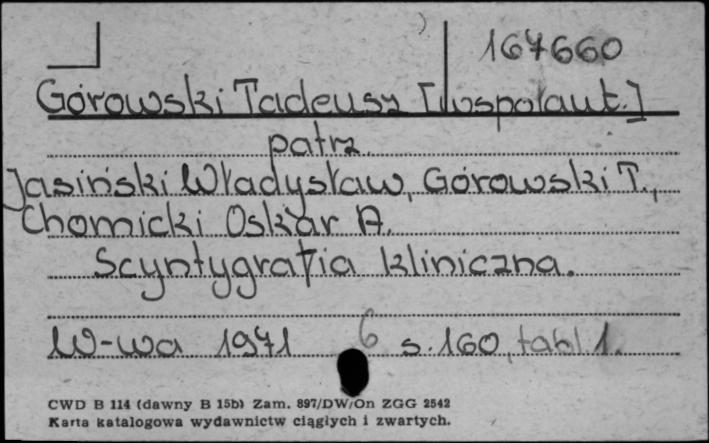 167660
Górowski Tadeusz [współaut.]
patrz
Jasiński Władysław, Górowski T.,
Chomicki Oskar A.
Scyntygrafia kliniczna.
W-wa 1971 6 s. 160, tabl. 1.
CWD B 114 (dawny B 15b) Zam. 897/DW/On ZGG 2542
Karta katalogowa wydawnictw ciągłych i zwartych.